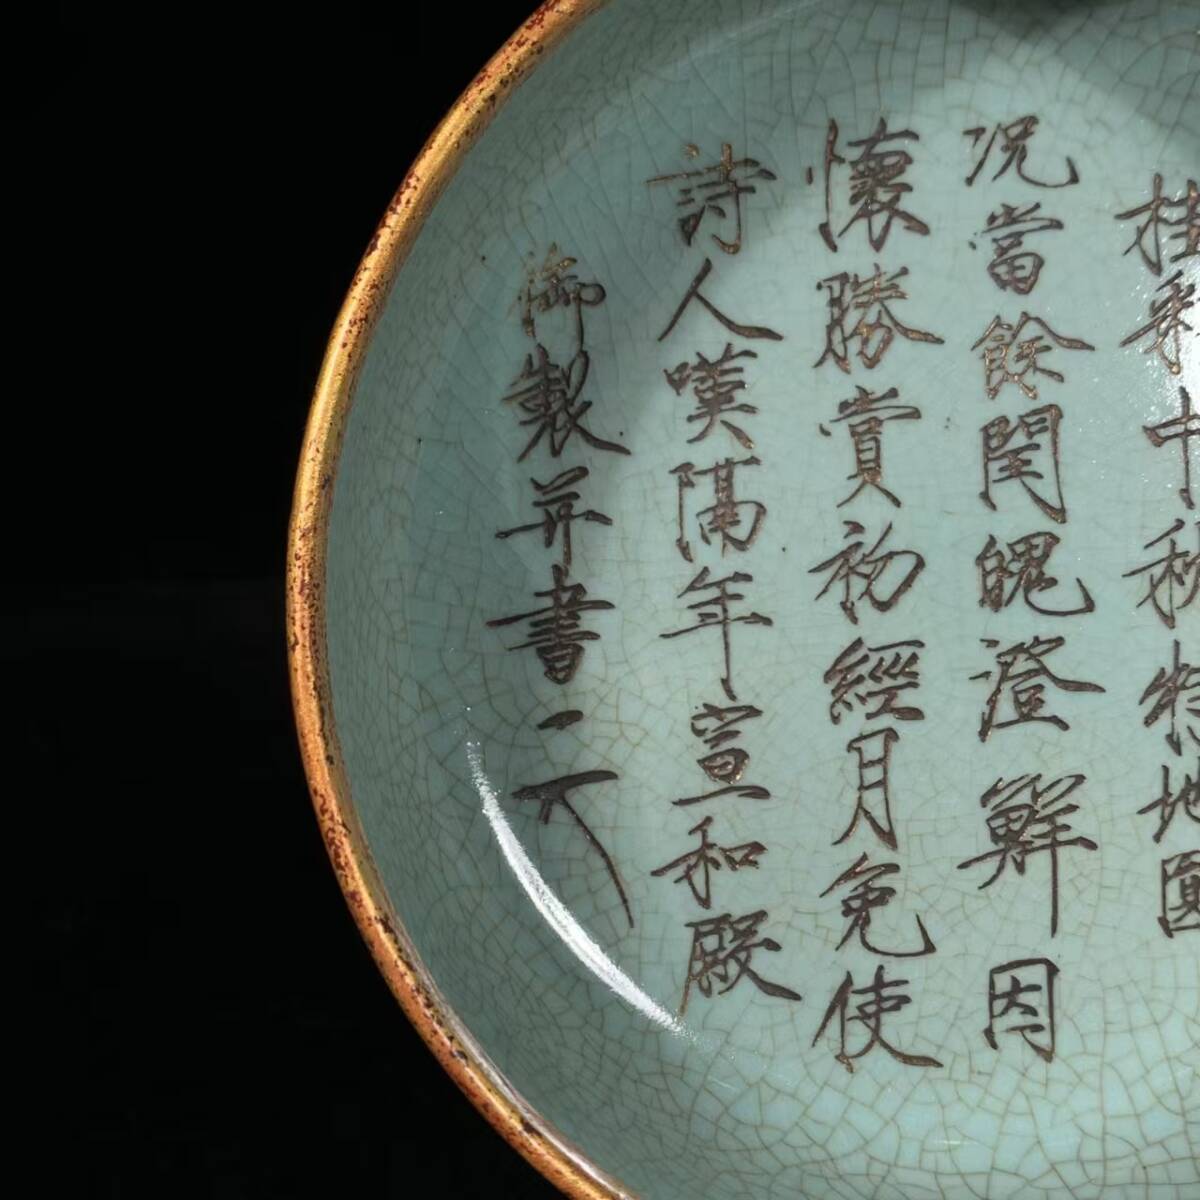 桂彩中秋特地圓
况當餘閏魄澄鮮因
懷勝賞初經月免使
詩人嘆隔年宣和殿
御製并書